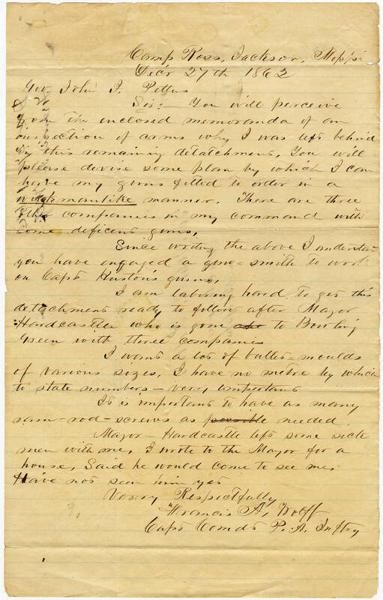 Camp Ross, Jackson, Missi
Decr 27th 1862
Gov John J. Pettus
Sir:- You will perceive
by the enclosed memoranda of an
inspection of arms why I was left behind
by this remaining detatchment. You will
please devise some plan by which I can
have my guns fitted to order in a
workmanlike manner. There are three
other companies in my command with
some deficient guns.
Since writing the above I understan
you have engaged a gun-smith to work
on Capt Huston's guns.
I am laboring hard to get this
detachment ready to follow after Major
Hardcastle who is gone to Bowling
Green with three companies
I want a lot of bullet-moulds
of various sizes. I have no metre by which
to state numbers - very important
It is important to have as many
ram-rod-screws as possible needed.
Major Hardcastle left some sick
men with me, I wrote to the Mayor for a
house, Said he would come to see me
Have not seen him yet
Very Respectfully
Francis A. Wolff
Capt Comdt P. A. Inftry